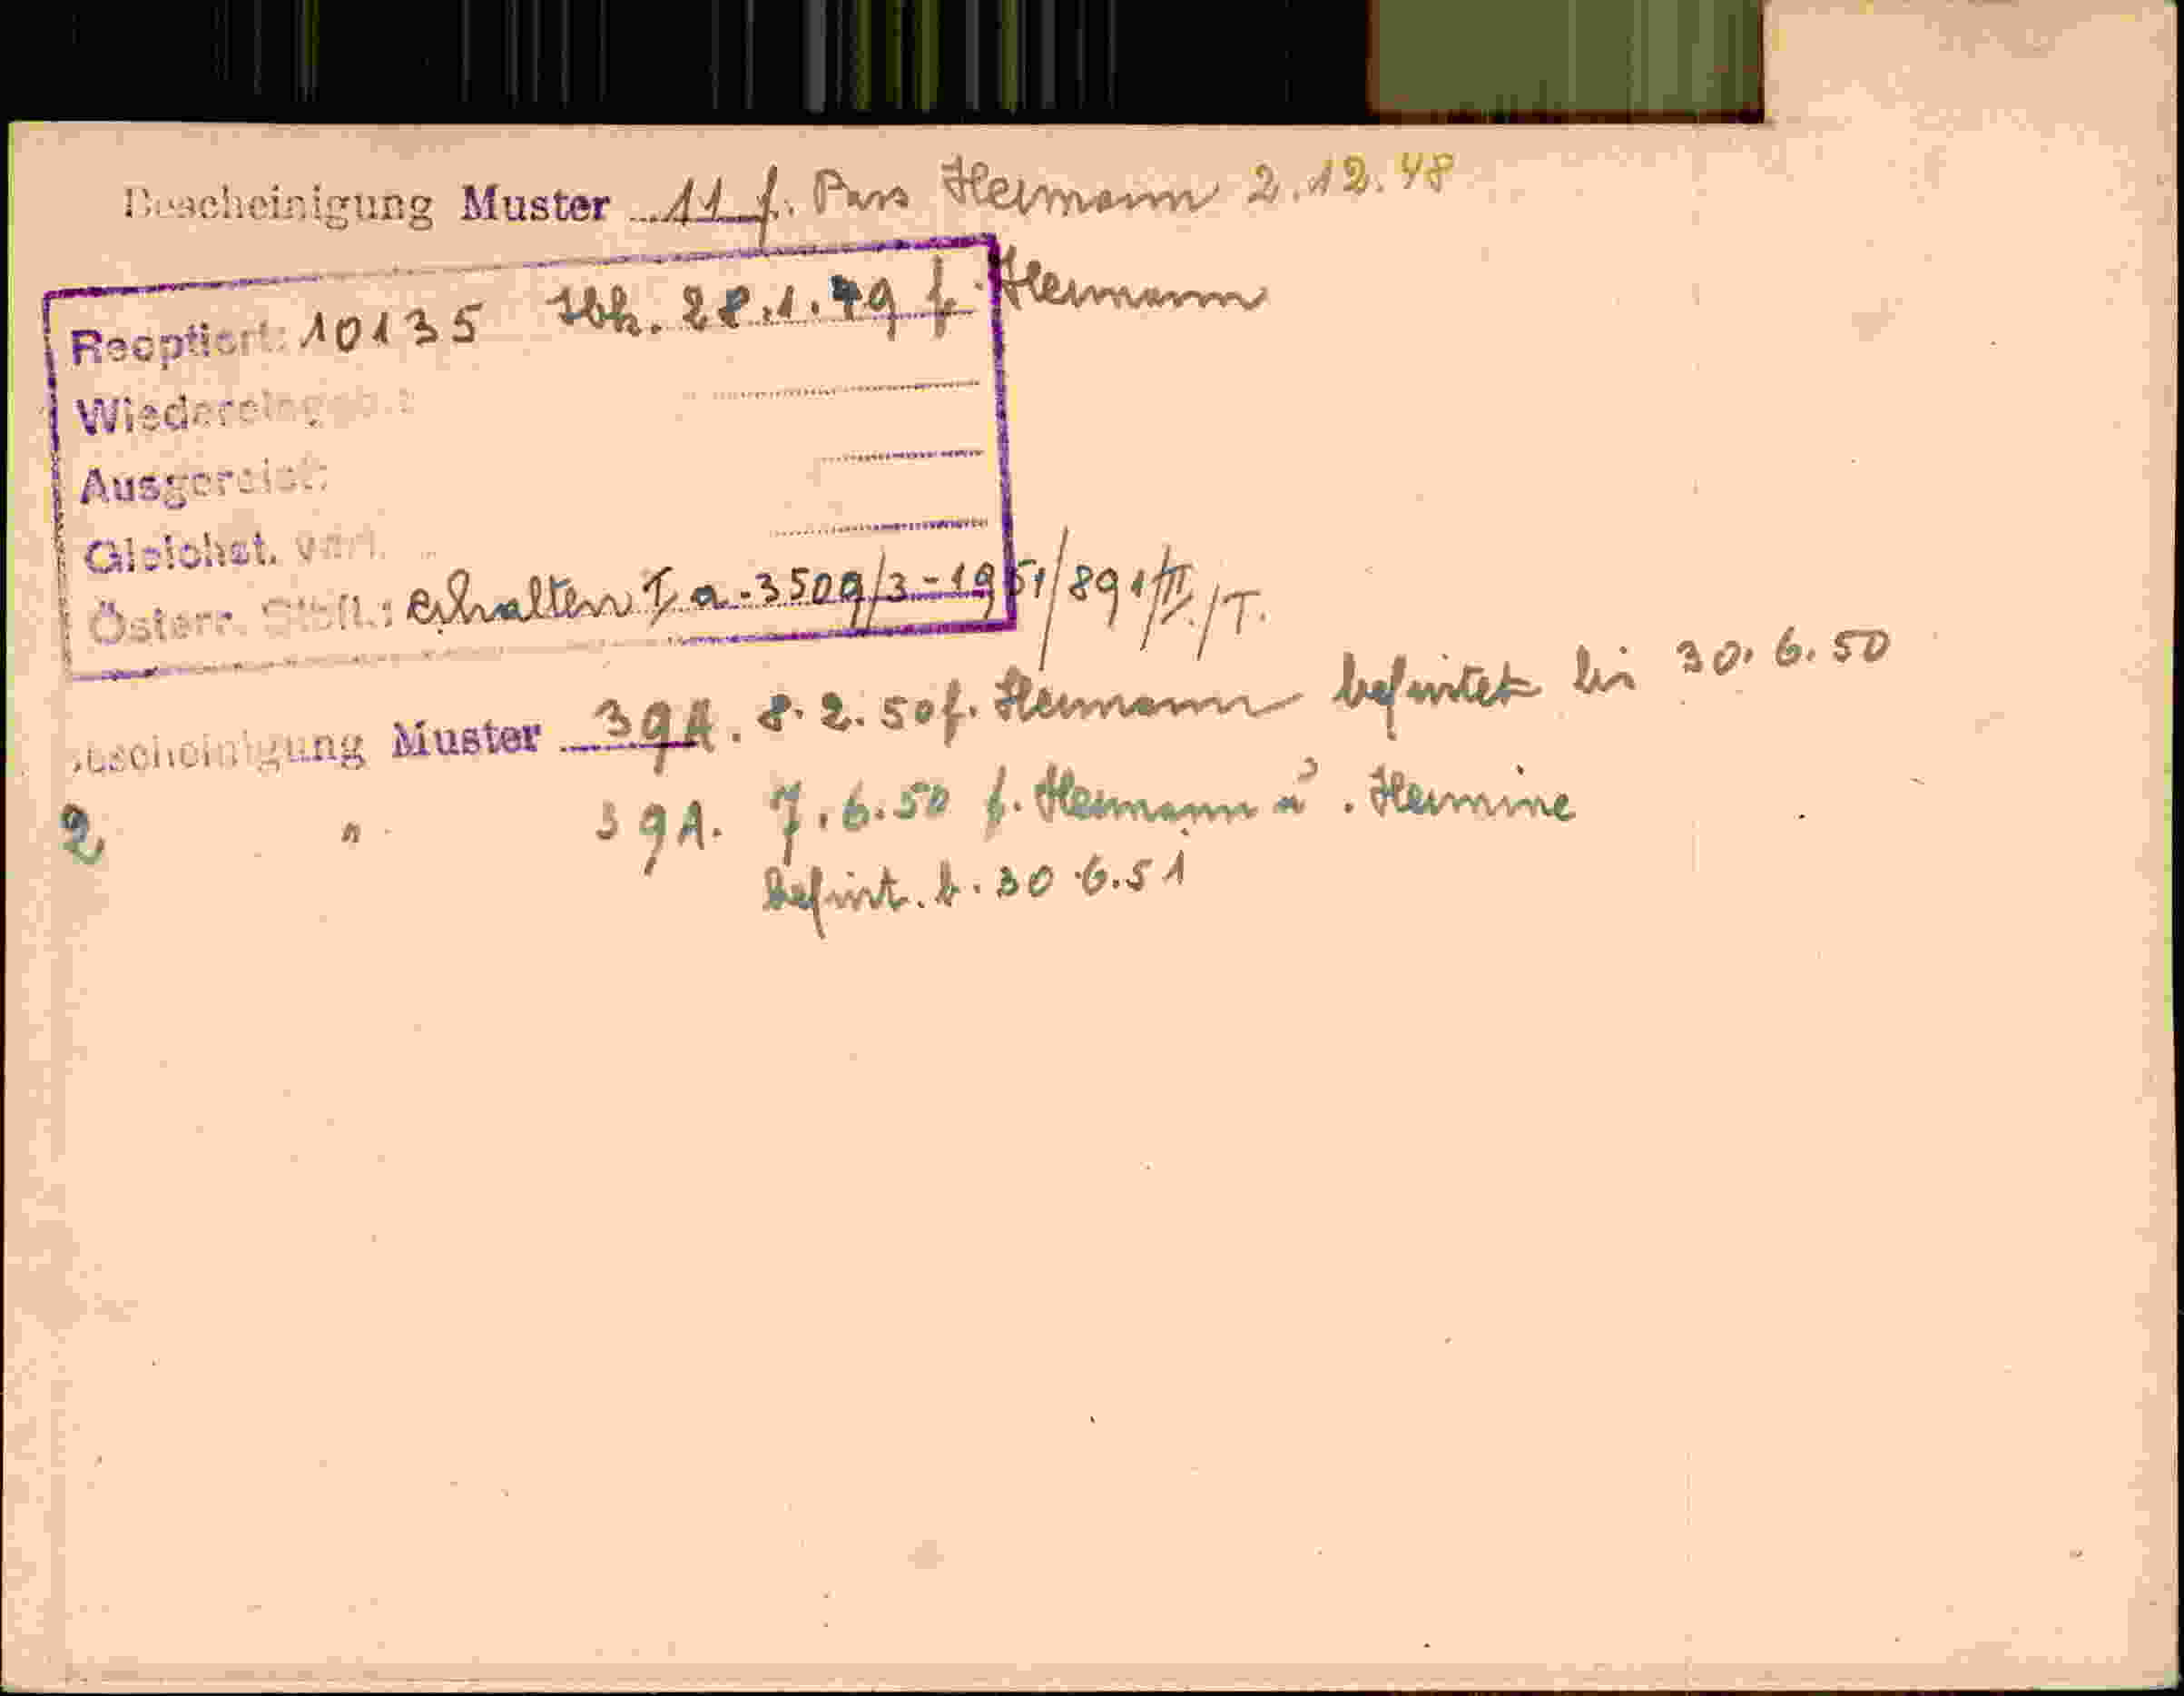 Bescheinigung Muster 11 f. Pass Hermann 2.12.48
Reoptiert: 10135 Ibk. 28.1.49 f. Hermann
Wiedereingeb.:
Ausgereist:
Gleichst. verl.
Österr. Stbft.: erhalten I a-3509/3-1951/891/II./T.
Bescheinigung Muster 39A. 8.2.50 f. Hermann befristet bis 30.6.50
2 " 39A. 7.6.50 f. Hermann u. Hermine
befrist. b. 30.6.51